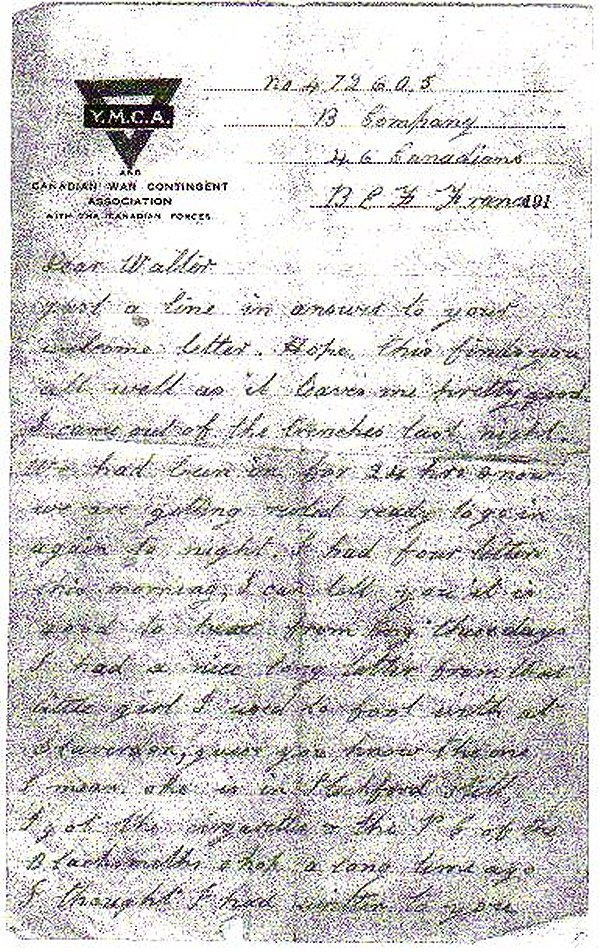 No 472605
Y.M.C.A.
B Company
46 Canadians
AND
CANADIAN WAR CONTINGENT
ASSOCIATION
WITH THE CANADIAN FORCES
B E F France 191
Dear Walter
just a line in answer to your
welcome letter. Hope this finds you
all well as it leaves me pretty good
I came out of the trenches last night.
We had been in for 24 hrs & now
we are getting rested ready to go in
again to night. I had four letters
this morning, I can tell you it is
good to hear from boy these days
I had a nice long letter from that
little girl I used to fool with at
guess you know the one
I mean. she is in still.
I got the & the P C of the
Blacksmiths shop a long time ago
I thought I had written to you